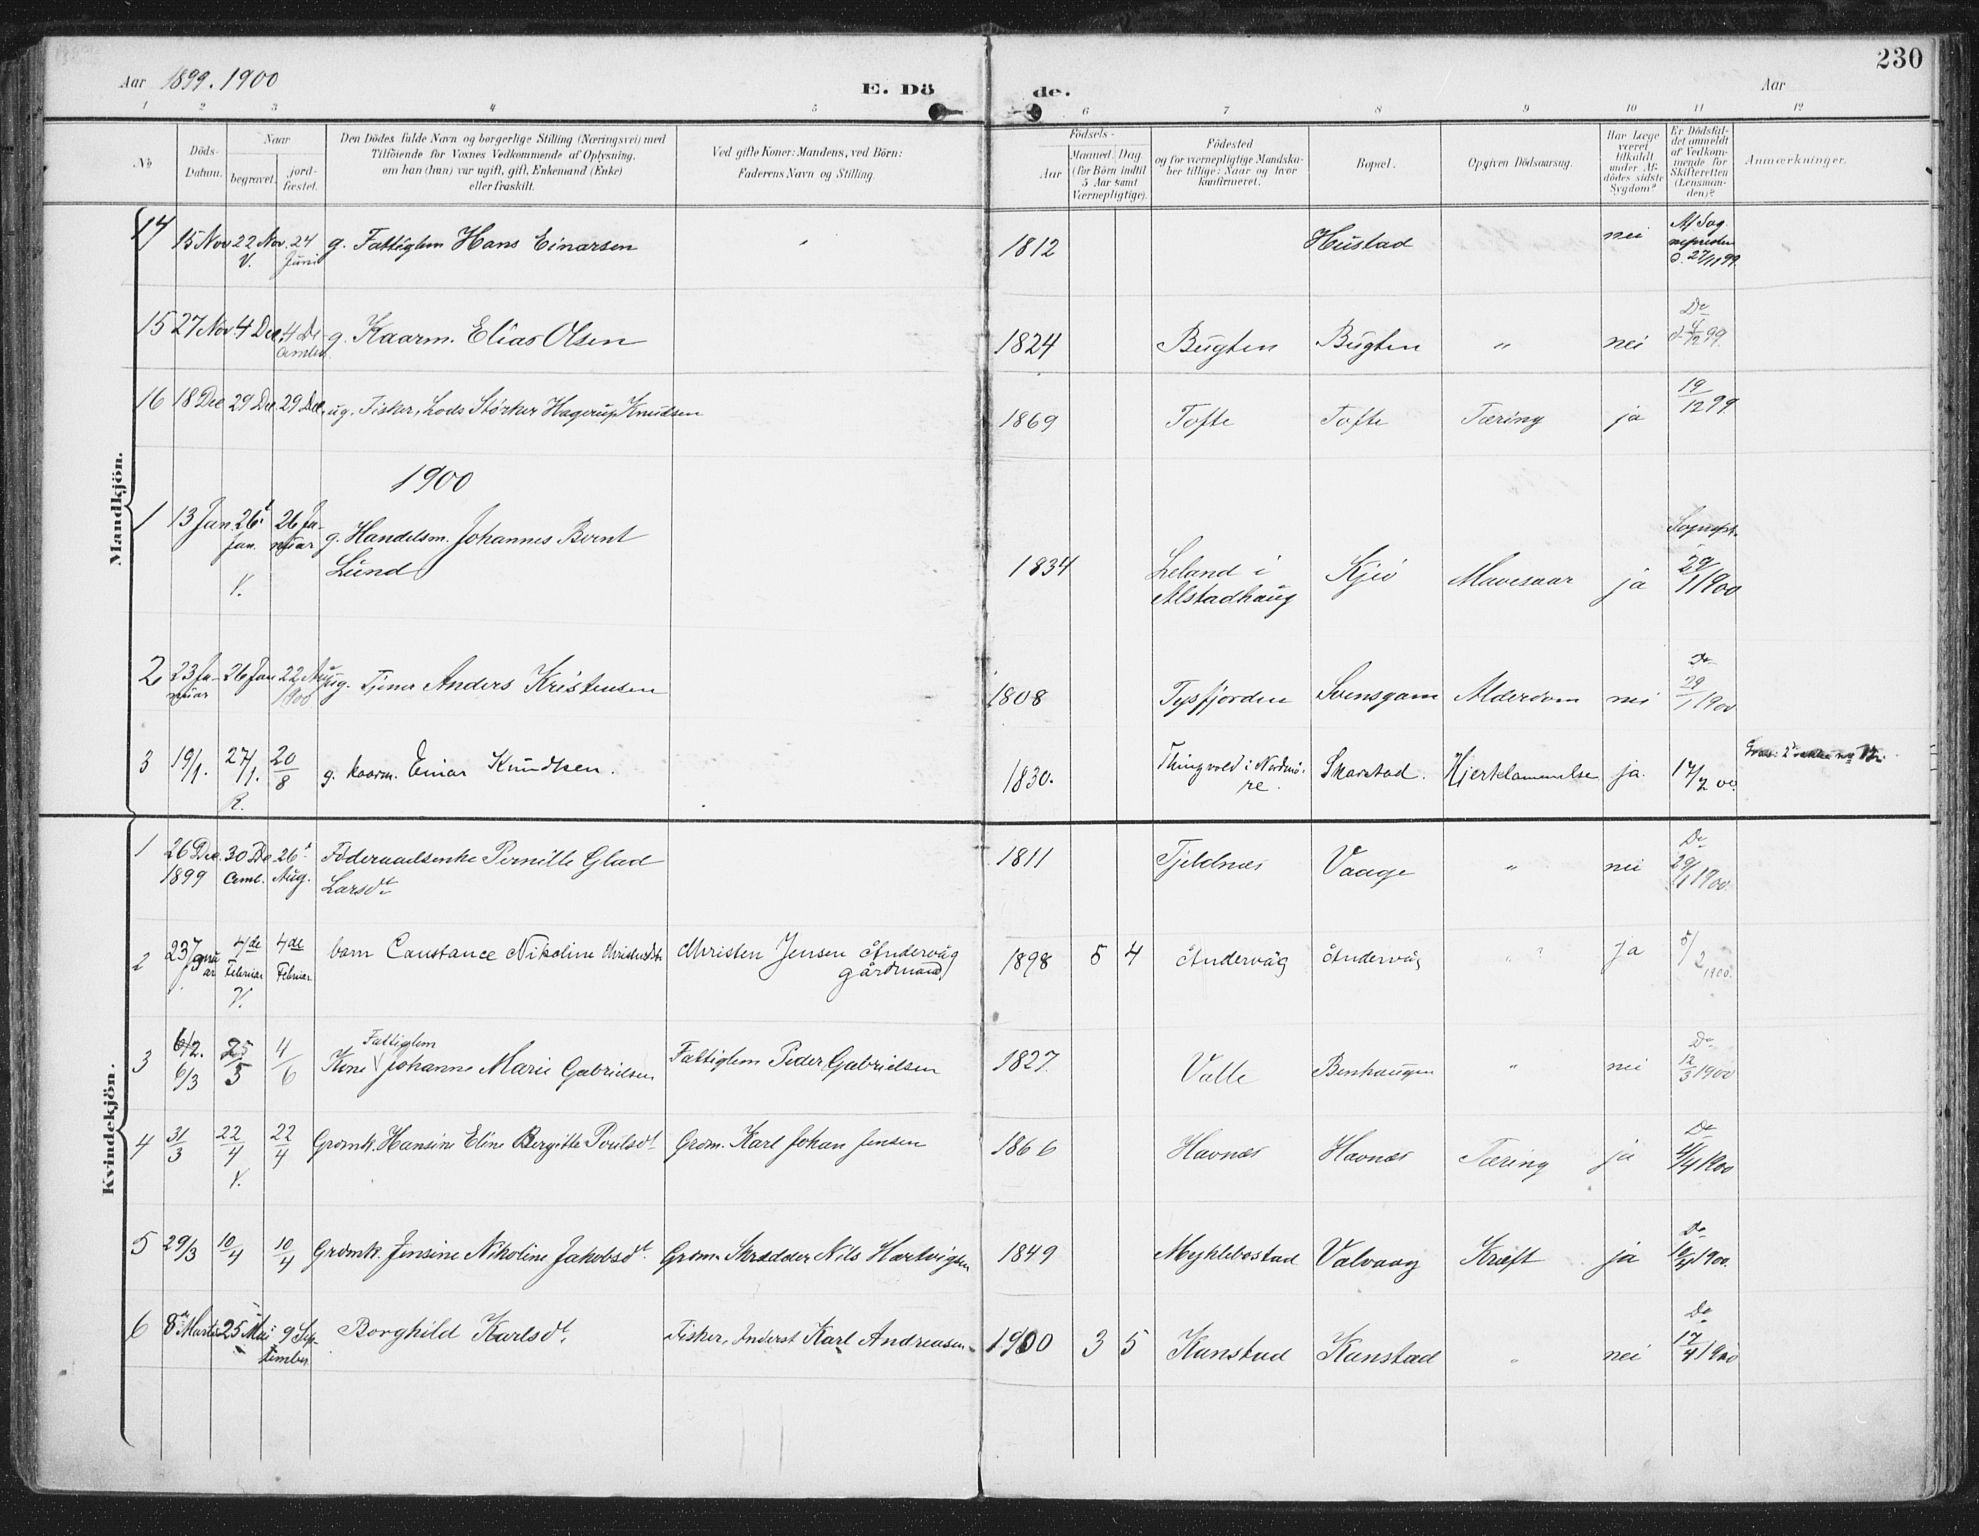 230
Aar 1899. 1900 E. Dö de. Aar
1 2 3 4 5 6 7 8 9 10 11 12
No
Döds-Datum.
Naar
begravet.
jord-fæstet.
Den Dödes fulde Navn og borgerlige Stilling (Næringsvei) med
Tilföiende for Voxnes Vedkommende af Oplysning,
om han (hun) var ugift, gift, Enkemand (Enke)
eller fraskilt.
Ved gifte Koner: Mandens, ved Börn:
Faderens Navn og Stilling.
Födsels-
Aar
Maaned. Dag.
(for Börn indtil
5 Aar samt
Værnepligtige).
Födested
og for værnepligtige Mandska-
ber tillige: Naar og hvor
konfirmeret.
Bopæl.
Opgiven Dödsaarsag.
Har Læge
været
tilkaldt
under Af-
dödes sidste
Sygdom?
Er Dödsfal-
det anmeldt
af Vedkom-
mende for
Skifteretten
(Lensman-
den)?
Anmærkninger.
Mandkjön.
14 15 Nov 22 Nov. V. 24 Juni g. Fattiglem Hans Einarsen 1812 Hustad nei 27/11 99
15 27 Nov 4 Dec 4 De-cember g. Kaarm. Elias Olsen 1824 Bugten Bugten " nei Do d. 4/12 99.
16 18 Dec 29 Dec 29 Dec. ug. Fisker, Lods Størker Hagerup Knudsen 1869 Tofte Tofte Tæring ja 19/12 99
1900
1 13 Jan 26t Jan. V. 26 Ja-nuar g. Handelsm. Johannes Bernt
Lund 1834 Leland i Alstadhaug Kjeø Mavesaar ja Sognepr. 29/1 1900
2 23 Ja-nuar 26 Jan 22 Aug 1900 ug. Tjener Anders Kristensen 1808 Tysfjorden Svensgam Alderdom nei Do 29/1 1900
3 19/1. 27/1. R. 20/8 g. kaarm. Einar Knudtsen. 1830. Thingvold i Nordmø-re. Skarstad. Hjertelammelse ja. 17/2 00.
Kvindekjön.
1 26 Dec 1899 30 De cemb. 26t Aug. Föderaadsenke Pernille Glad
Larsdt 1811 Tjeldnæs Vaage " nei Do 29/1 1900.
2 23 Januar 4de Februar V. 4de Februar barn Constance Nikoline Christensdtr Christen Jensen Åndervåg gårdmand 1898 5 4 Åndervåg Åndervåg " Ja 5/2 1900.
3 6/2. 6/3 25/5 4/6 Fattiglem
Kone Johanne Marie Gabrielsen Fattiglem Peder Gabrielsen 1827 Valle Benhaugen " nei Do 12/3 1900
4 31/3 22/4 V. 22/4 Grdmk. Hansine Eline Bergitte Poulsdt Grdm. Karl Johan Jensen 1866 Havnæs Havnæs Tæring ja Do 4/4 1900
5 29/3 10/4 10/4 Grdmk. Jensine Nikoline Jakobsdt Grdm. Skrædder Nils Hartvigsen 1849 Myklebostad Valvaag Kræft ja Do 10/4 1900.
6 8de Marts 25 Mai 9 Sep-tember Borghild Karlsdt. Fisker, Inderst Karl Andreasen 1900 3 5 Kanstad Kanstad " nei Do 17/4 1900